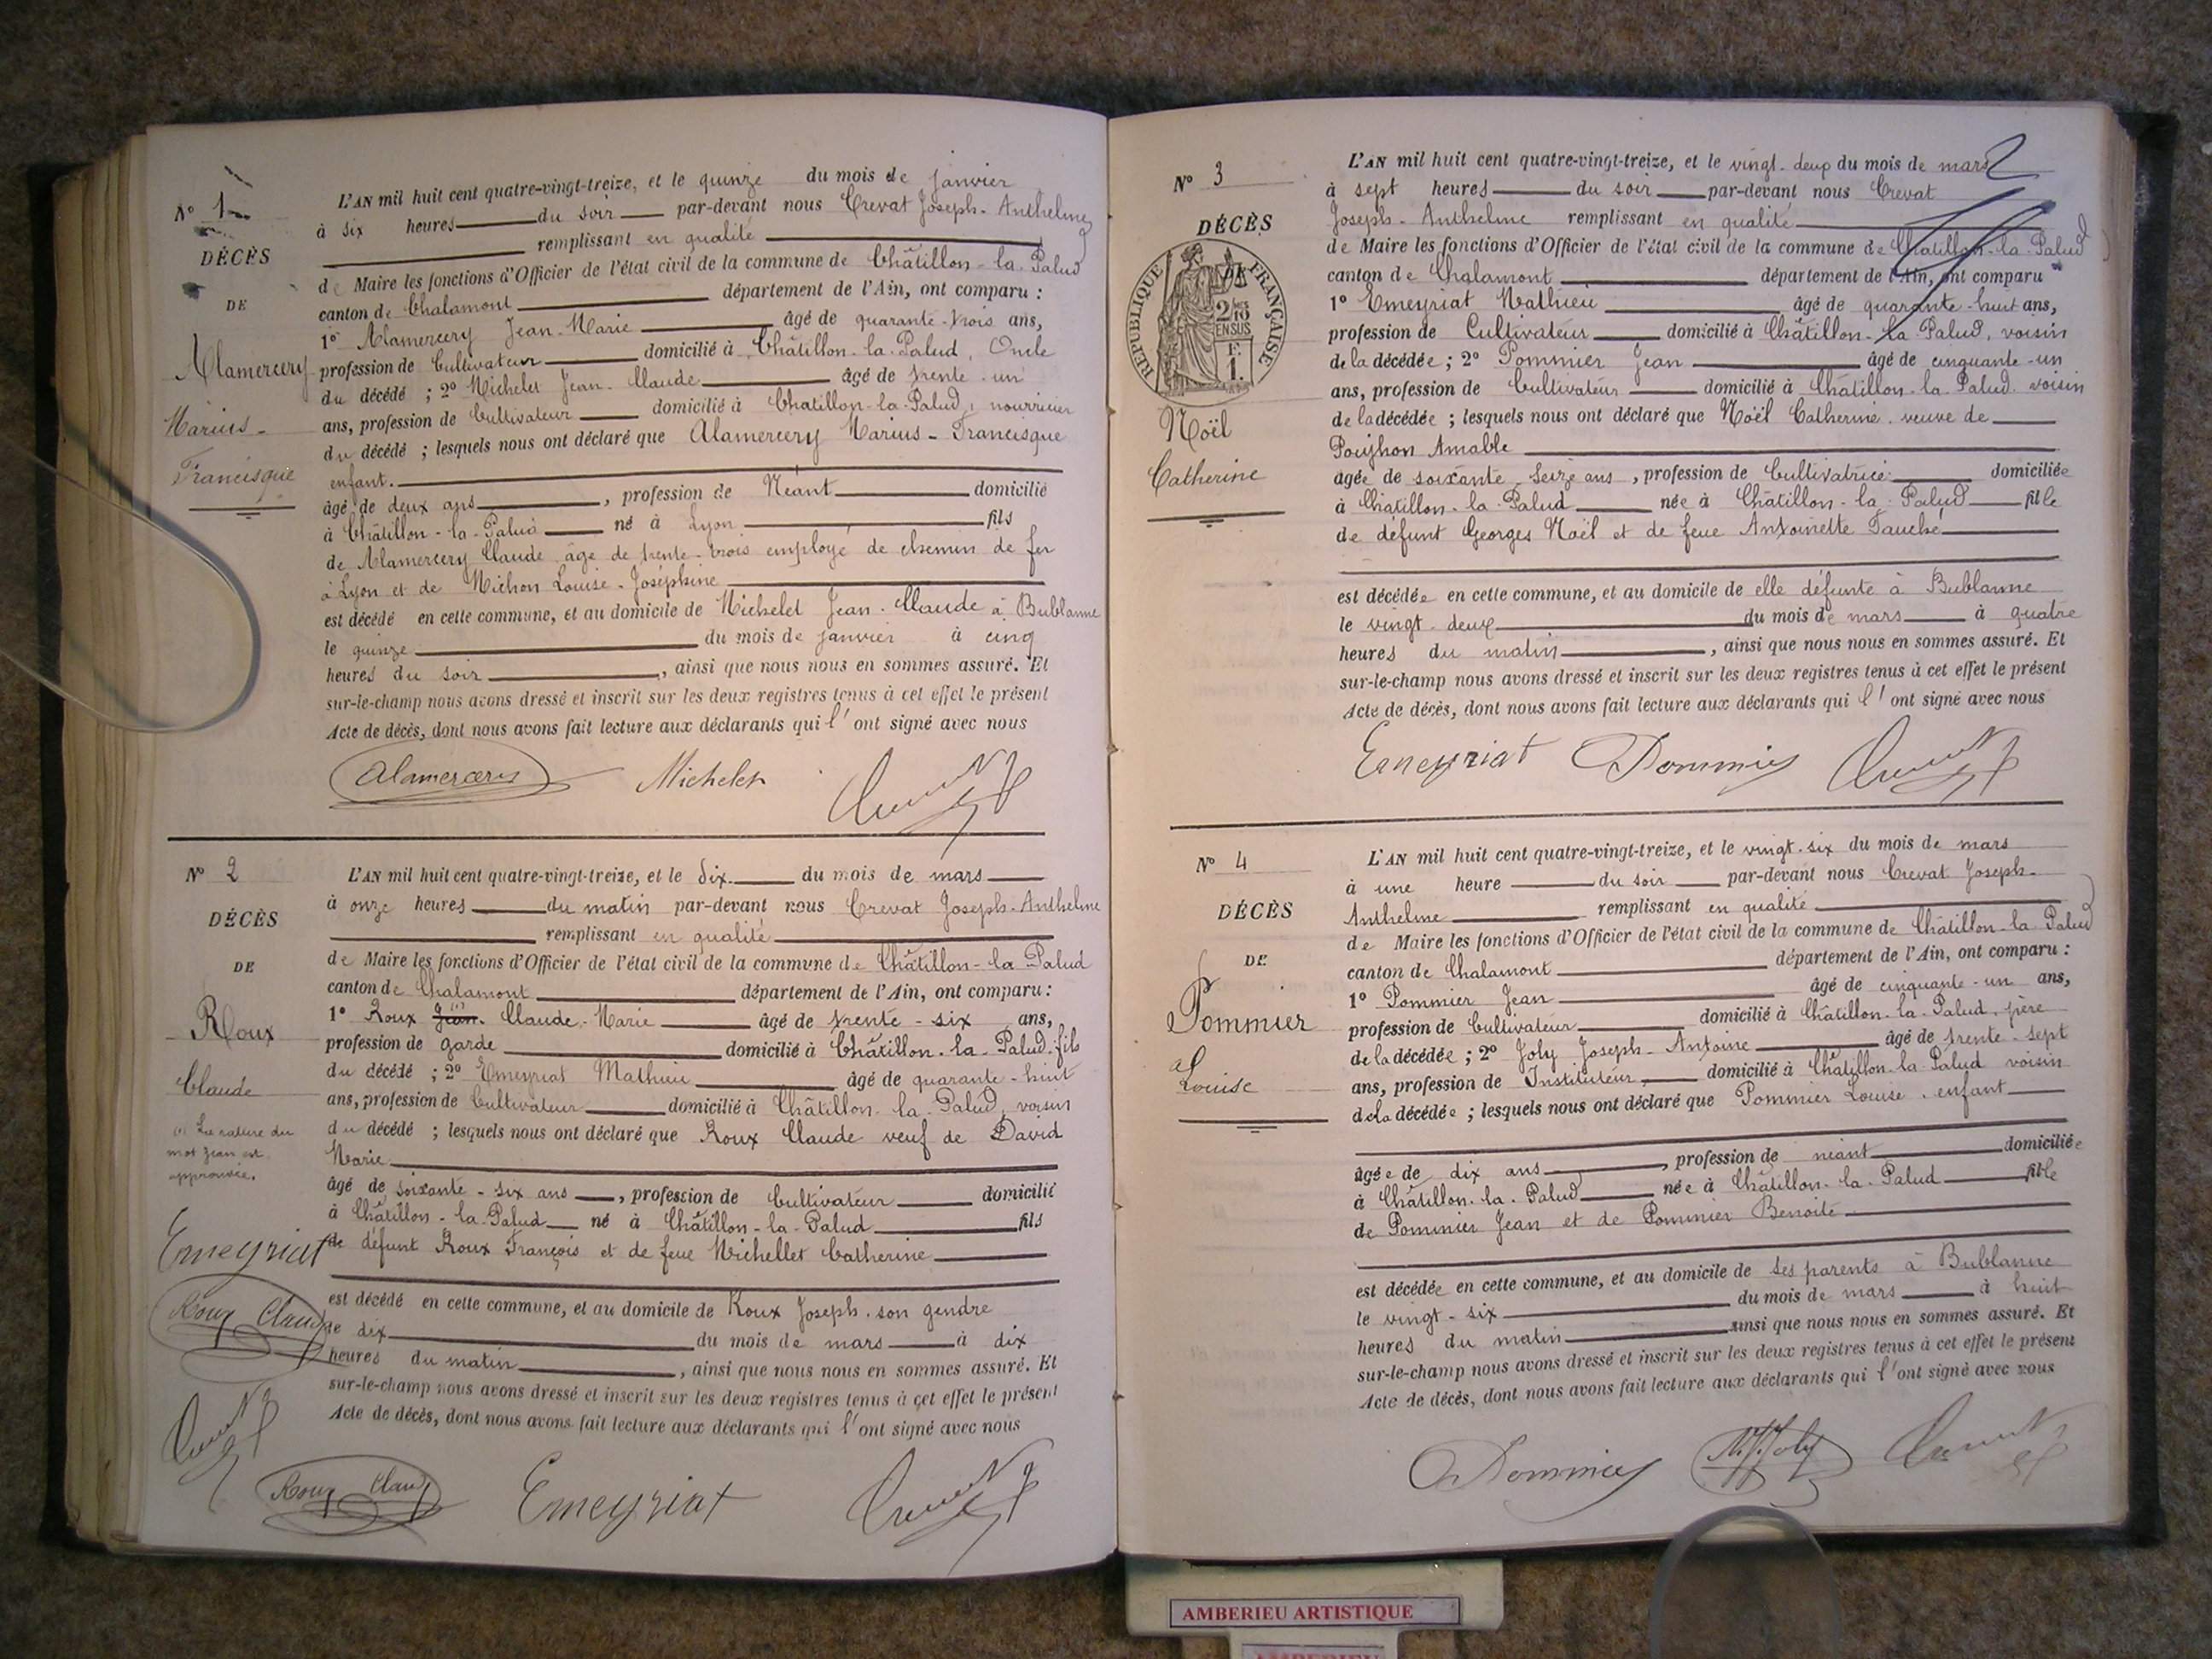 N° 1
DÉCÈS
DE
Alamercery
Marius-
Francisque
L'AN mil huit cent quatre-vingt-treize, et le quinze du mois de janvier
à six heures du soir par-devant nous Crevat Joseph-Anthelme
remplissant en qualité
de Maire les fonctions d'Officier de l'état civil de la commune de Châtillon-la-Palud
canton de Chalamont département de l'Ain, ont comparu :
1° Alamercery Jean-Marie âgé de quarante-trois ans,
profession de Cultivateur domicilié à Châtillon-la-Palud, Oncle
du décédé ; 2° Michelet Jean-Claude âgé de trente-un
ans, profession de Cultivateur domicilié à Chatillon-la-Palud, nourricier
du décédé ; lesquels nous ont déclaré que Alamercery Marius-Francisque
enfant.
âgé de deux ans, profession de Néant domicilié
à Châtillon-la-Palud né à Lyon fils
de Alamercery Claude âgé de trente-trois employé de chemin de fer
à Lyon et de Michon Louise-Joséphine
est décédé en cette commune, et au domicile de Michelet Jean-Claude à Bublanne
le quinze du mois de janvier à cinq
heures du soir, ainsi que nous nous en sommes assuré. Et
sur-le-champ nous avons dressé et inscrit sur les deux registres tenus à cet effet le présent
Acte de décès, dont nous avons fait lecture aux déclarants qui l'ont signé avec nous
Michelet
N° 2
DÉCÈS
DE
Roux
Claude
(1) La rature du
mot Jean est
approuvée.
Emeyriat
Roux Claud
L'AN mil huit cent quatre-vingt-treize, et le dix du mois de mars
à onze heures du matin par-devant nous Crevat Joseph-Anthelme
remplissant en qualité
de Maire les fonctions d'Officier de l'état civil de la commune de Châtillon-la-Palud
canton de Chalamont département de l'Ain, ont comparu :
1° Roux Jean (1) Claude-Marie âgé de trente-six ans,
profession de garde domicilié à Châtillon-la-Palud, fils
du décédé ; 2° Emeyriat Mathieu âgé de quarante-huit
ans, profession de Cultivateur domicilié à Châtillon-la-Palud, voisin
du décédé ; lesquels nous ont déclaré que Roux Claude veuf de David
Marie
âgé de soixante-six ans, profession de Cultivateur domicilié
à Châtillon-la-Palud né à Châtillon-la-Palud fils
de défunt Roux François et de feue Michellet Catherine
est décédé en cette commune, et au domicile de Roux Joseph, son gendre
le dix du mois de mars à dix
heures du matin, ainsi que nous nous en sommes assuré. Et
sur-le-champ nous avons dressé et inscrit sur les deux registres tenus à cet effet le présent
Acte de décès, dont nous avons fait lecture aux déclarants qui l'ont signé avec nous
Roux Claud Emeyriat
N° 3
DÉCÈS
DE
RÉPUBLIQUE FRANÇAISE
2/10 EN SUS
F. 1.
Noël
Catherine
L'AN mil huit cent quatre-vingt-treize, et le vingt-deux du mois de mars
à sept heures du soir par-devant nous Crevat
Joseph-Anthelme remplissant en qualité
de Maire les fonctions d'Officier de l'état civil de la commune de Chatillon-la-Palud
canton de Chalamont département de l'Ain, ont comparu
1° Emeyriat Mathieu âgé de quarante-huit ans,
profession de Cultivateur domicilié à Châtillon-la-Palud, voisin
de la décédée ; 2° Pommier Jean âgé de cinquante-un
ans, profession de Cultivateur domicilié à Châtillon-la-Palud voisin
de la décédée ; lesquels nous ont déclaré que Noël Catherine, veuve de
Amable
âgée de soixante-seize ans, profession de Cultivatrice domiciliée
à Châtillon-la-Palud née à Châtillon-la-Palud fille
de défunt Georges Noël et de feue Antoinette Fauché
est décédée en cette commune, et au domicile de elle défunte à Bublanne
le vingt-deux du mois de mars à quatre
heures du matin, ainsi que nous nous en sommes assuré. Et
sur-le-champ nous avons dressé et inscrit sur les deux registres tenus à cet effet le présent
Acte de décès, dont nous avons fait lecture aux déclarants qui l'ont signé avec nous
Emeyriat Pommier
N° 4
DÉCÈS
DE
Pommier
Louise
L'AN mil huit cent quatre-vingt-treize, et le vingt-six du mois de mars
à une heure du soir par-devant nous Crevat Joseph-
Anthelme remplissant en qualité
de Maire les fonctions d'Officier de l'état civil de la commune de Châtillon-la-Palud
canton de Chalamont département de l'Ain, ont comparu :
1° Pommier Jean âgé de cinquante-un ans,
profession de Cultivateur domicilié à Châtillon-la-Palud, père
de la décédée ; 2° Joly Joseph-Antoine âgé de trente-sept
ans, profession de Instituteur, domicilié à Châtillon-la-Palud voisin
de la décédée ; lesquels nous ont déclaré que Pommier Louise, enfant
âgée de dix ans, profession de néant domiciliée
à Châtillon-la-Palud née à Châtillon-la-Palud fille
de Pommier Jean et de Pommier Benoite
est décédée en cette commune, et au domicile de ses parents à Bublanne
le vingt-six du mois de mars à huit
heures du matin ainsi que nous nous en sommes assuré. Et
sur-le-champ nous avons dressé et inscrit sur les deux registres tenus à cet effet le présent
Acte de décès, dont nous avons fait lecture aux déclarants qui l'ont signé avec nous
Pommier Joly
AMBERIEU ARTISTIQUE
AMBERIEU